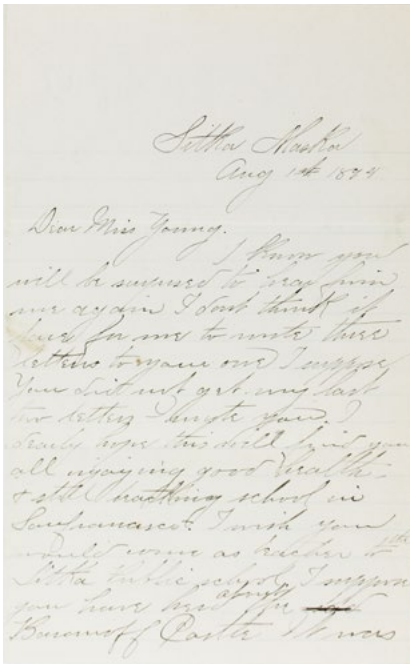 Sitka Alaska
Aug 1st 18
Dear Miss Young.
I know you
will be surprised to hear from
me again I dont think it
fare for me to write three
letters to youre one I suppose
You did not get my last
two letters I wrote you. I
dearly hope this will find you
all injoying good health
& still teaching school in
Sanfrancisco. I wish you
would come as teacher to the
Sitka Public school I suppose
you have heard about the
Baranoff Castle It was